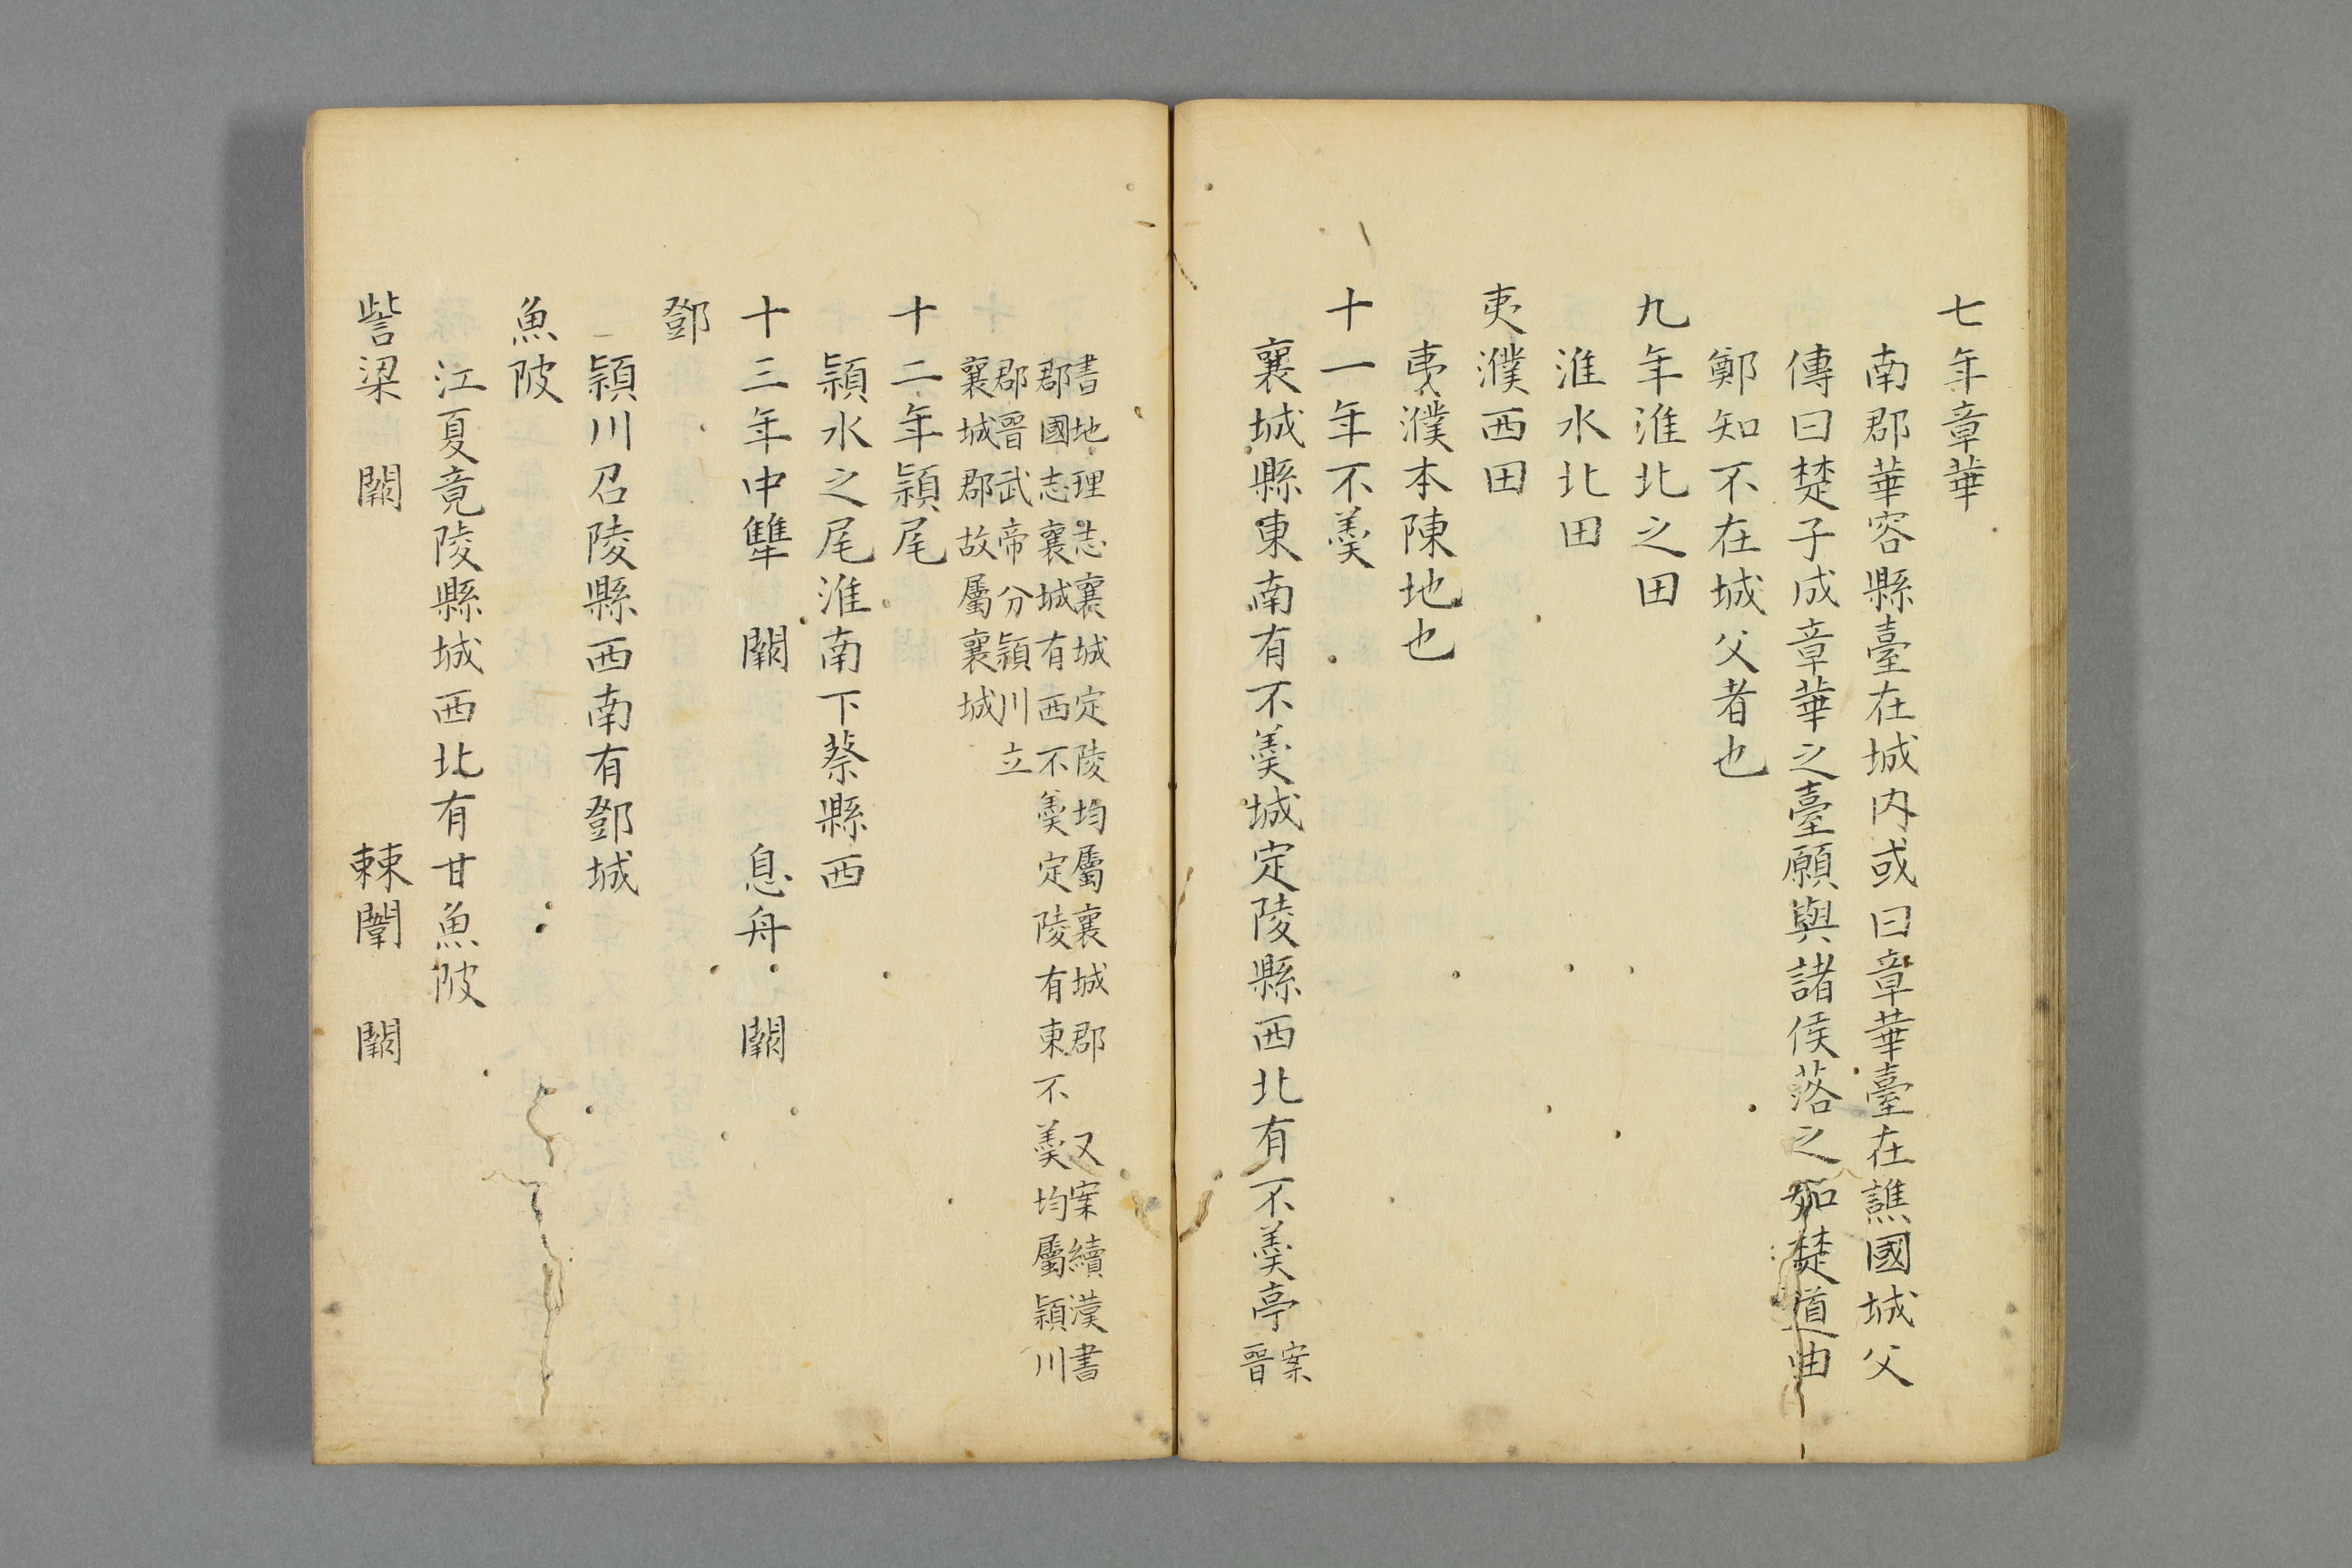 七年章華
南郡華容縣臺在城内或曰章華臺在譙國城父
傳曰楚子成章華之臺願與諸侯落之如楚道由
鄭知不在城父者也
九年淮北之田
淮水北田
夷濮西田
夷濮本陳地也
十一年不羹
襄城縣東南有不羹城定陵縣西北有不羹亭案
晉
書地理志襄城定陵均屬襄城郡又案續漢書
郡國志襄城有西不羹定陵有東不羹均屬頴川
郡晉武帝分頴川立
襄城郡故屬襄城
十二年頴尾
頴水之尾淮南下蔡縣西
十三年中犨 闕 息舟 闕
鄧
頴川召陵縣西南有鄧城
魚陂
江夏竟陵縣城西北有甘魚陂
訾梁 闕 棘闈 闕